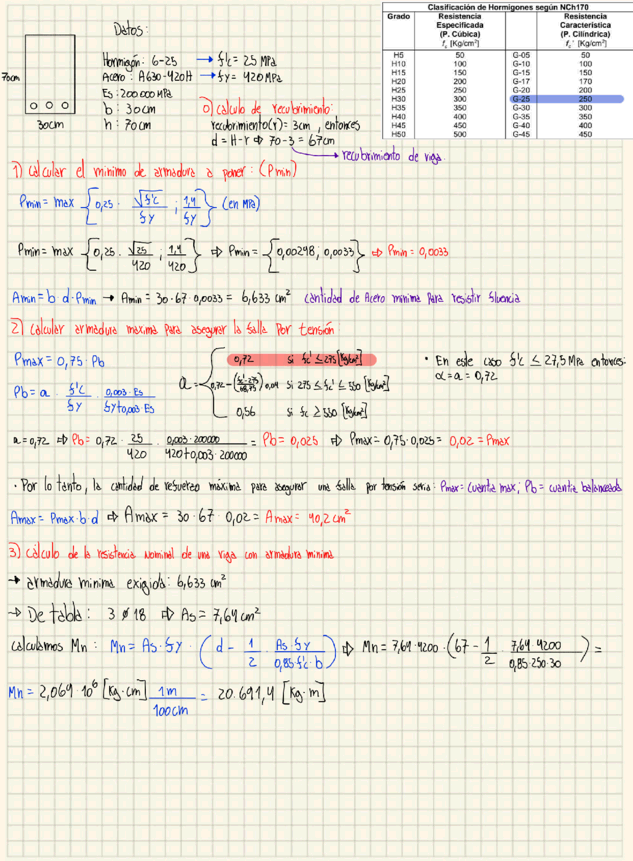 Datos:
Hormigón: G-25 → f'c = 25 MPa
Acero: A630-420H → fy = 420 MPa
Es: 200 000 MPa
b: 30cm
h: 70cm
70cm
30cm
Clasificación de Hormigones según NCh170
Grado Resistencia Especificada (P. Cúbica) fc [Kg/cm²] Resistencia Característica (P. Cilíndrica) fc' [Kg/cm²]
H5 50 G-05 50
H10 100 G-10 100
H15 150 G-15 150
H20 200 G-17 170
H25 250 G-20 200
H30 300 G-25 250
H35 350 G-30 300
H40 400 G-35 350
H45 450 G-40 400
H50 500 G-45 450
0) calculo de recubrimiento:
recubrimiento(r) = 3cm, entonces
d = H-r ⇒ 70-3 = 67cm
→ recubrimiento de viga.
1) Calcular el mínimo de armadura a poner: (ρmin)
ρmin = max {0,25 · √f'c / fy ; 1,4 / fy} (en MPa)
ρmin = max {0,25 · √25 / 420 ; 1,4 / 420} ⇒ ρmin = {0,00298, 0,0033} ⇒ ρmin = 0,0033
Amin = b d · ρmin → Amin = 30 · 67 · 0,0033 = 6,633 cm² cantidad de Acero mínima para resistir fluencia
2) Calcular armadura maxima para asegurar la falla por tensión:
ρmax = 0,75 · ρb
ρb = a · f'c / fy · 0,003 · Es / fy + 0,003 Es
a = { 0,72 si fc' ≤ 275 [Kg/cm²]
0,72 - (fc' - 275 / 68,75) 0,04 si 275 ≤ fc' ≤ 550 [Kg/cm²]
0,56 si fc ≥ 550 [Kg/cm²]
• En este caso f'c ≤ 27,5 MPa entonces:
α = a = 0,72
a = 0,72 ⇒ ρb = 0,72 · 25 / 420 · 0,003 · 200000 / 420 + 0,003 · 200000 = ρb = 0,025 ⇒ ρmax = 0,75 · 0,025 = 0,02 = ρmax
· Por lo tanto, la cantidad de refuerzo máxima para asegurar una falla por tensión seria: ρmax = cuantía max; ρb = cuantía balanceada
Amax = ρmax · b · d ⇒ Amax = 30 · 67 · 0,02 = Amax = 40,2 cm²
3) cálculo de la resistencia nominal de una viga con armadura minima
→ armadura minima exigida: 6,633 cm²
→ De tabla: 3 ø 18 ⇒ As = 7,64 cm²
calculamos Mn: Mn = As · fy · (d - 1 / 2 · As · fy / 0,85 · f'c · b) ⇒ Mn = 7,64 · 4200 · (67 - 1 / 2 · 7,64 · 4200 / 0,85 · 250 · 30) =
Mn = 2,069 · 10⁶ [Kg · cm] 1m / 100cm = 20.691,4 [Kg · m]